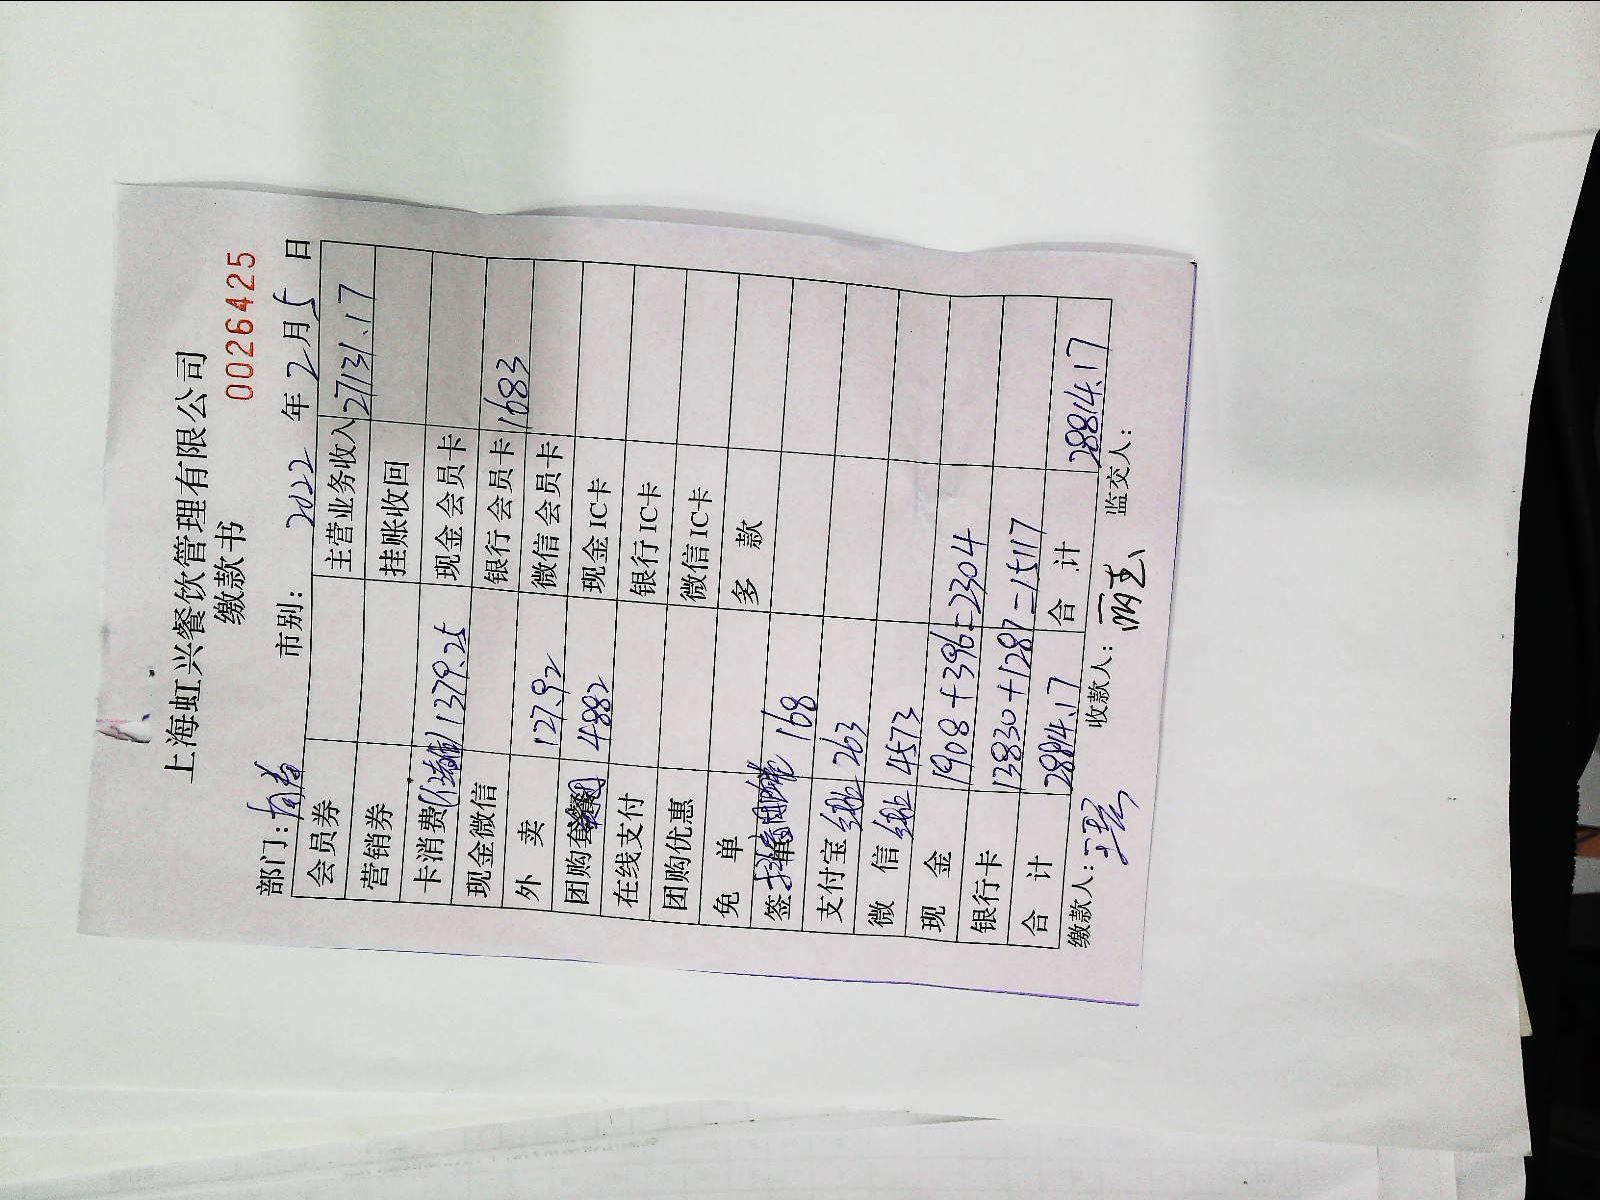 上海虹兴餐饮管理有限公司
缴款书
0026425
部门: 市别: 2022 年 2 月 5 日
会员券 主营业务收入 27131.17
营销券 挂账收回
卡消费 1379.25 现金会员卡
现金微信 银行会员卡 1683
外卖 127.92 微信会员卡
团购套餐 4882 现金IC卡
在线支付 银行IC卡
团购优惠 微信IC卡
免单 多款
签单 168
支付宝 263
微信 4573
现金 1908+396=2304
银行卡 13830+1287=15117
合计 28814.17 合计 28814.17
缴款人: 收款人: 监交人: